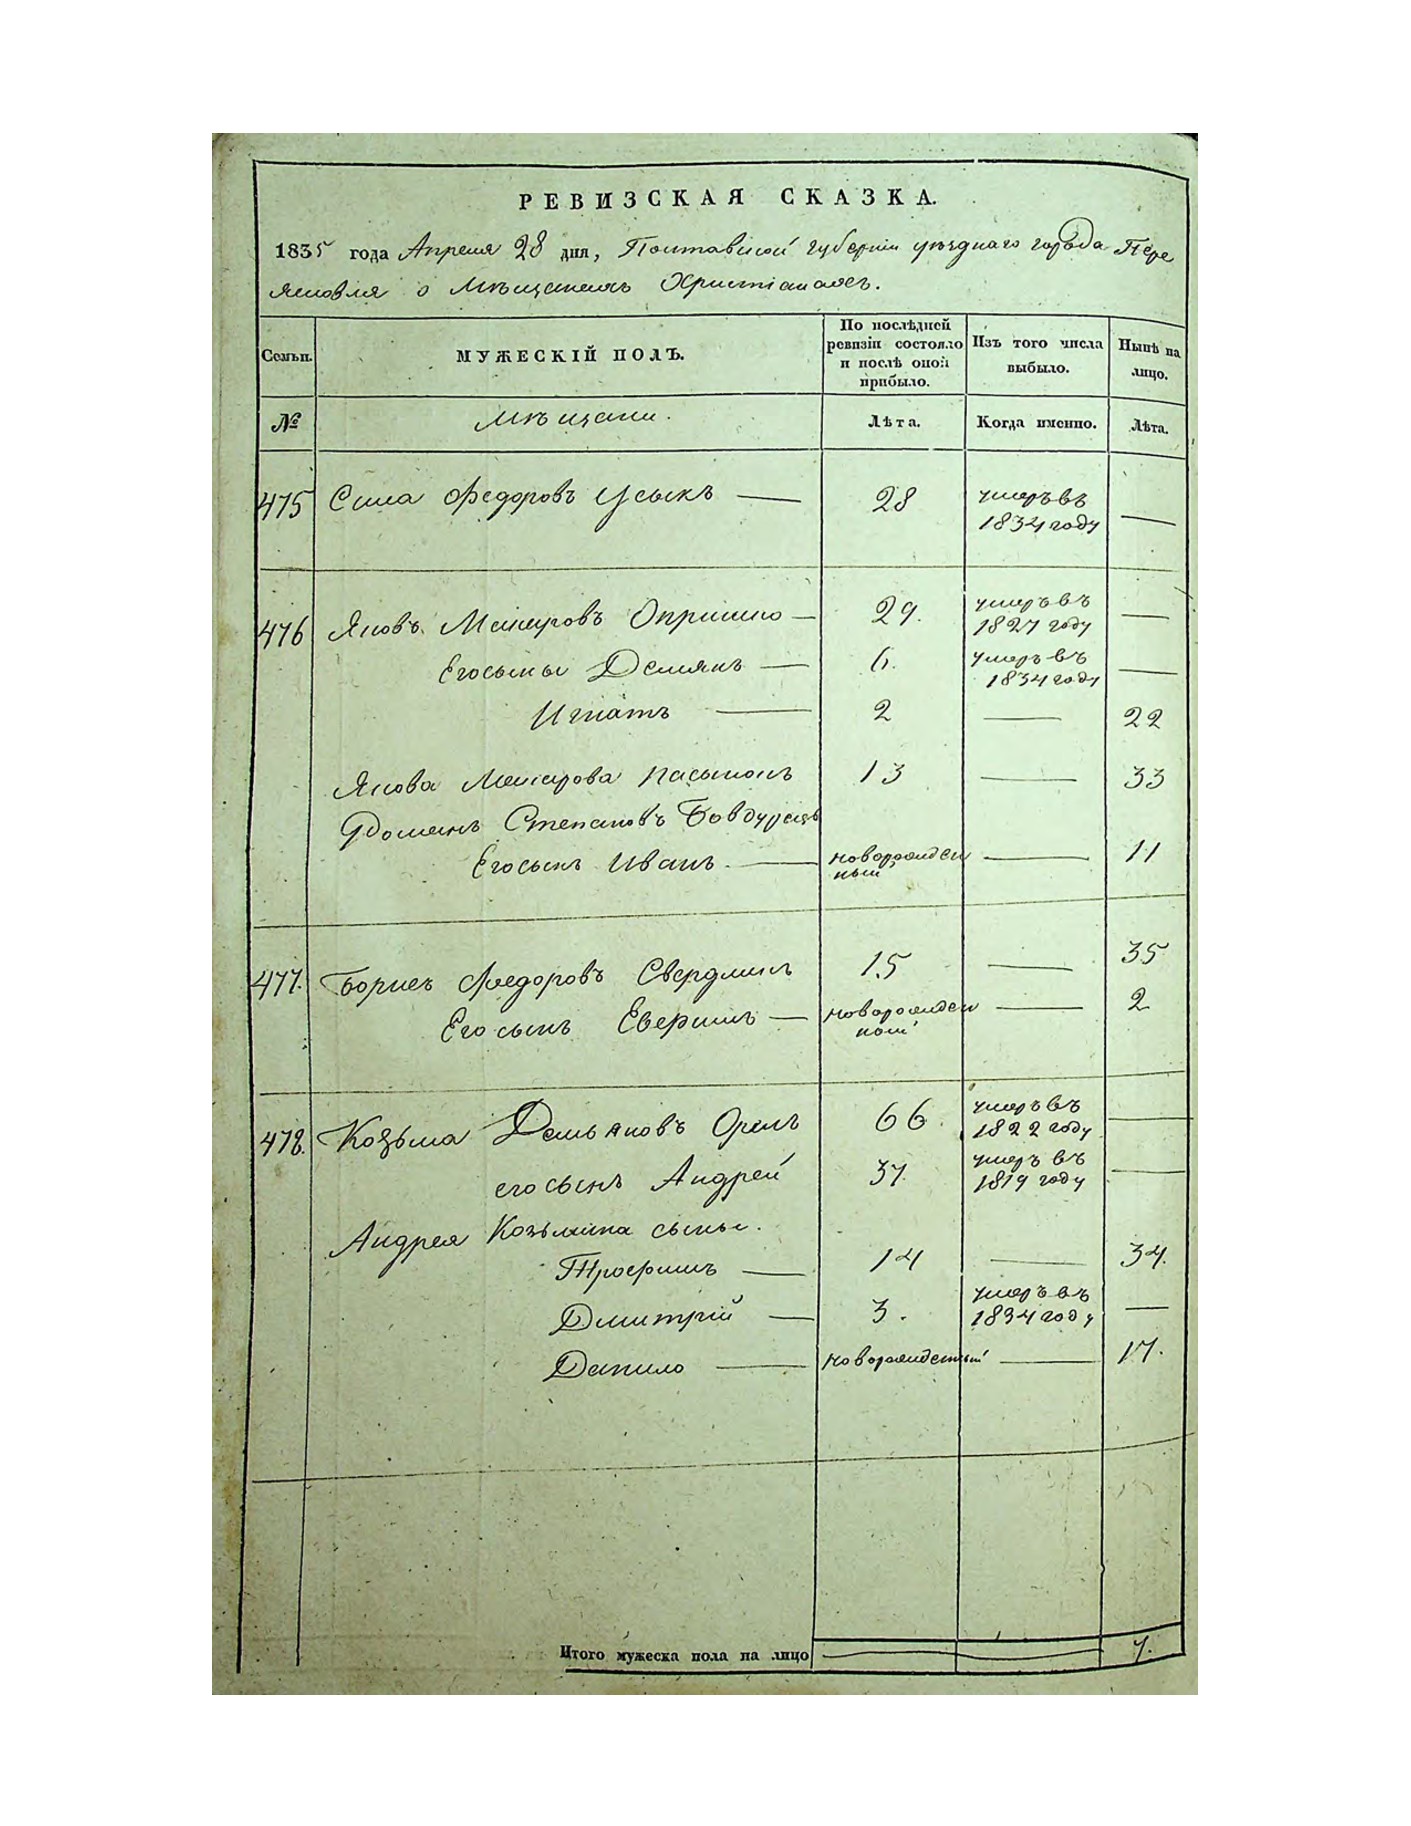 РЕВИЗСКАЯ СКАЗКА.
1835 года Апреля 28 дня, Полтавской губернии уѣзднаго города Пере
яславля о Мѣщанахъ Христіанахъ.
Семьи. МУЖЕСКІЙ ПОЛЪ. По послѣдней ревизіи состояло и послѣ оной прибыло. Изъ того числа выбыло. Нынѣ на лицо.
№ Мѣщани. Лѣта. Когда именно. Лѣта.
475 Сила Федоровъ Усыкъ — 28 умеръ въ 1834 году —
476 Яковъ Макаровъ Опришко — 29. умеръ въ 1827 году —
Его сыны Демянъ — 6. умеръ въ 1834 году —
Игнатъ — 2 — 22
Якова Макарова пасынокъ 13 — 33
Романъ Степановъ
Его сынъ Иванъ — новорожденный — 11
477. Борисъ Федоровъ 15 — 35
Его сынъ — новорожденный — 2
478. Козьма Демьяновъ Орелъ 66. умеръ въ 1822 году —
его сынъ Андрей 37. умеръ въ 1819 году —
Андрея Козьмина сыны.
Трофимъ — 14 — 34.
Дмитрій — 3. умеръ въ 1834 году —
Данило — новорожденный — 17.
Итого мужеска пола на лицо — 7.